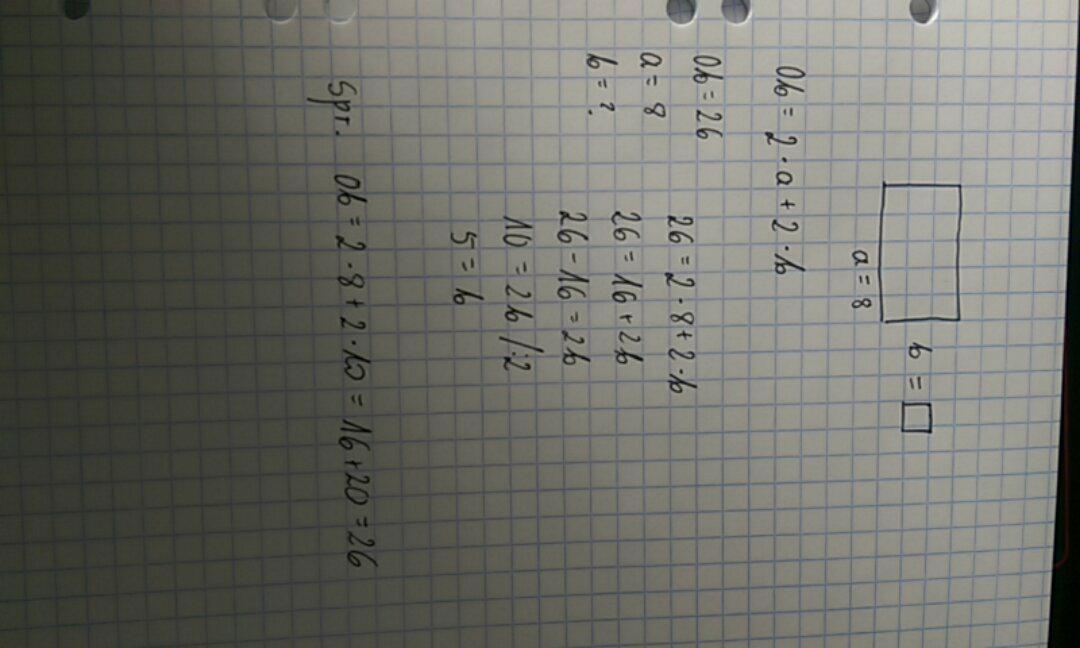 b = □
a = 8
Ob = 2·a + 2·b
Ob = 26
a = 8
b = ?
26 = 2·8 + 2·b
26 = 16 + 2b
26 - 16 = 2b
10 = 2b /:2
5 = b
Spr. Ob = 2·8 + 2·10 = 16 + 20 = 26